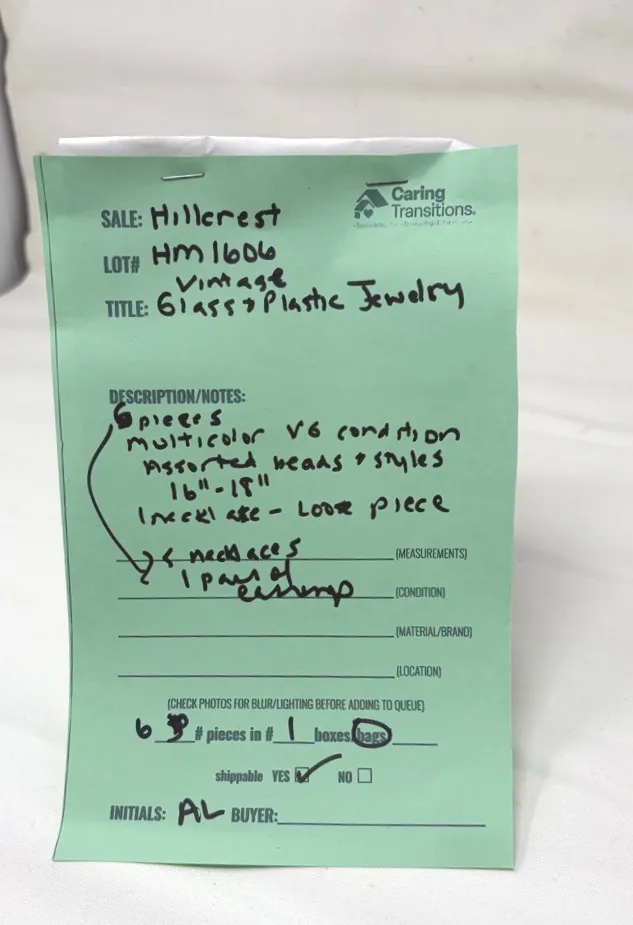 Caring
Transitions.
SALE: Hillcrest
LOT# HM1606
Vintage
TITLE: Glass + Plastic Jewelry
DESCRIPTION/NOTES:
6 pieces
multicolor VG condition
Assorted beads + styles
16"-18"
1 necklace - Loose piece
necklaces (MEASUREMENTS)
1 pair of
earrings (CONDITION)
(MATERIAL/BRAND)
(LOCATION)
(CHECK PHOTOS FOR BLUR/LIGHTING BEFORE ADDING TO QUEUE)
6 # pieces in # 1 boxes/bags
shippable YES NO
INITIALS: AL BUYER: